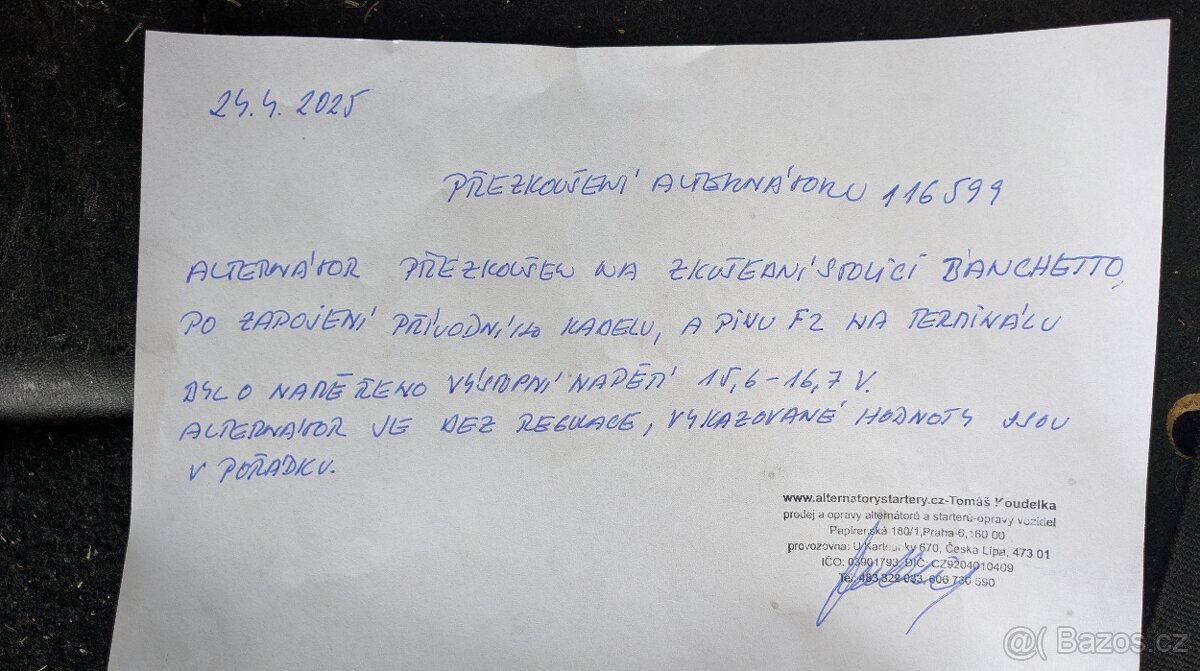 24.4. 2025
PŘEZKOUŠENÍ ALTERNÁTORU 116599
ALTERNÁTOR PŘEZKOUŠEN NA ZKUŠEBNÍ STOLICI BANCHETTO,
PO ZAPOJENÍ PŘÍVODNÍHO KABELU, A PINU F2 NA TERMINÁLU
BYLO NAMĚŘENO VÝSTUPNÍ NAPĚTÍ 15,6-16,7 V.
ALTERNÁTOR JE BEZ REGULACE, VYKAZOVANÉ HODNOTY JSOU
V POŘÁDKU.
www.alternatorystartery.cz-Tomáš Koudelka
prodej a opravy alternátorů a starterů-opravy vozidel
Papírenská 180/1,Praha-6,160 00
provozovna: U Kartounky 670, Česká Lípa, 473 01
IČO: 03901793, DIČ: CZ9204010409
Tel: 483 329 033, 606 730 590
@( Bazos.cz